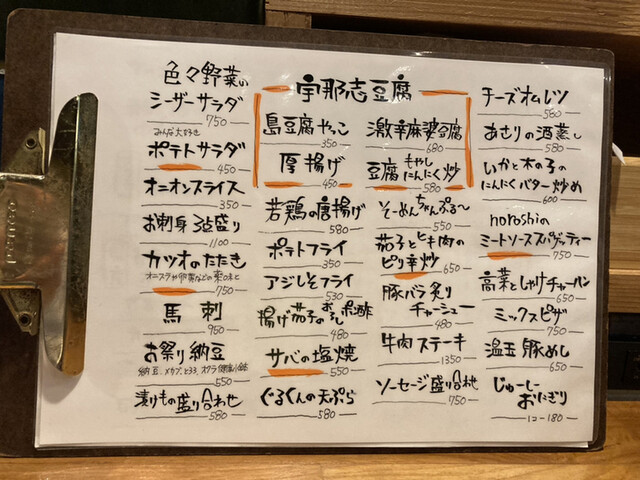 色々野菜の
シーザーサラダ
750
みんな大好き
ポテトサラダ
450
オニオンスライス
350
お刺身3点盛り
1100
カツオのたたき
750
馬刺
950
お祭り納豆
550
漬けもの盛り合わせ
580
宇那志豆腐
島豆腐やっこ
350
厚揚げ
450
激辛麻婆豆腐
680
豆腐もやしにんにく炒
580
若鶏の唐揚げ
580
ポテトフライ
350
アジしそフライ
530
揚げ茄子のおろしポン酢
480
サバの塩焼
550
ぐるくんの天ぷら
580
そーめんちゃんぷる〜
550
茄子とヒキ肉の
ピリ辛炒
650
豚バラ炙り
チャーシュー
480
牛肉ステーキ
1350
ソーセージ盛り合わせ
750
チーズオムレツ
560
あさりの酒蒸し
580
いかと木の子の
にんにくバター炒め
600
noroshiの
ミートソーススパゲッティー
750
高菜としゃけチャーハン
650
ミックスピザ
750
温玉豚めし
650
じゅーしー
おにぎり
1コ-180